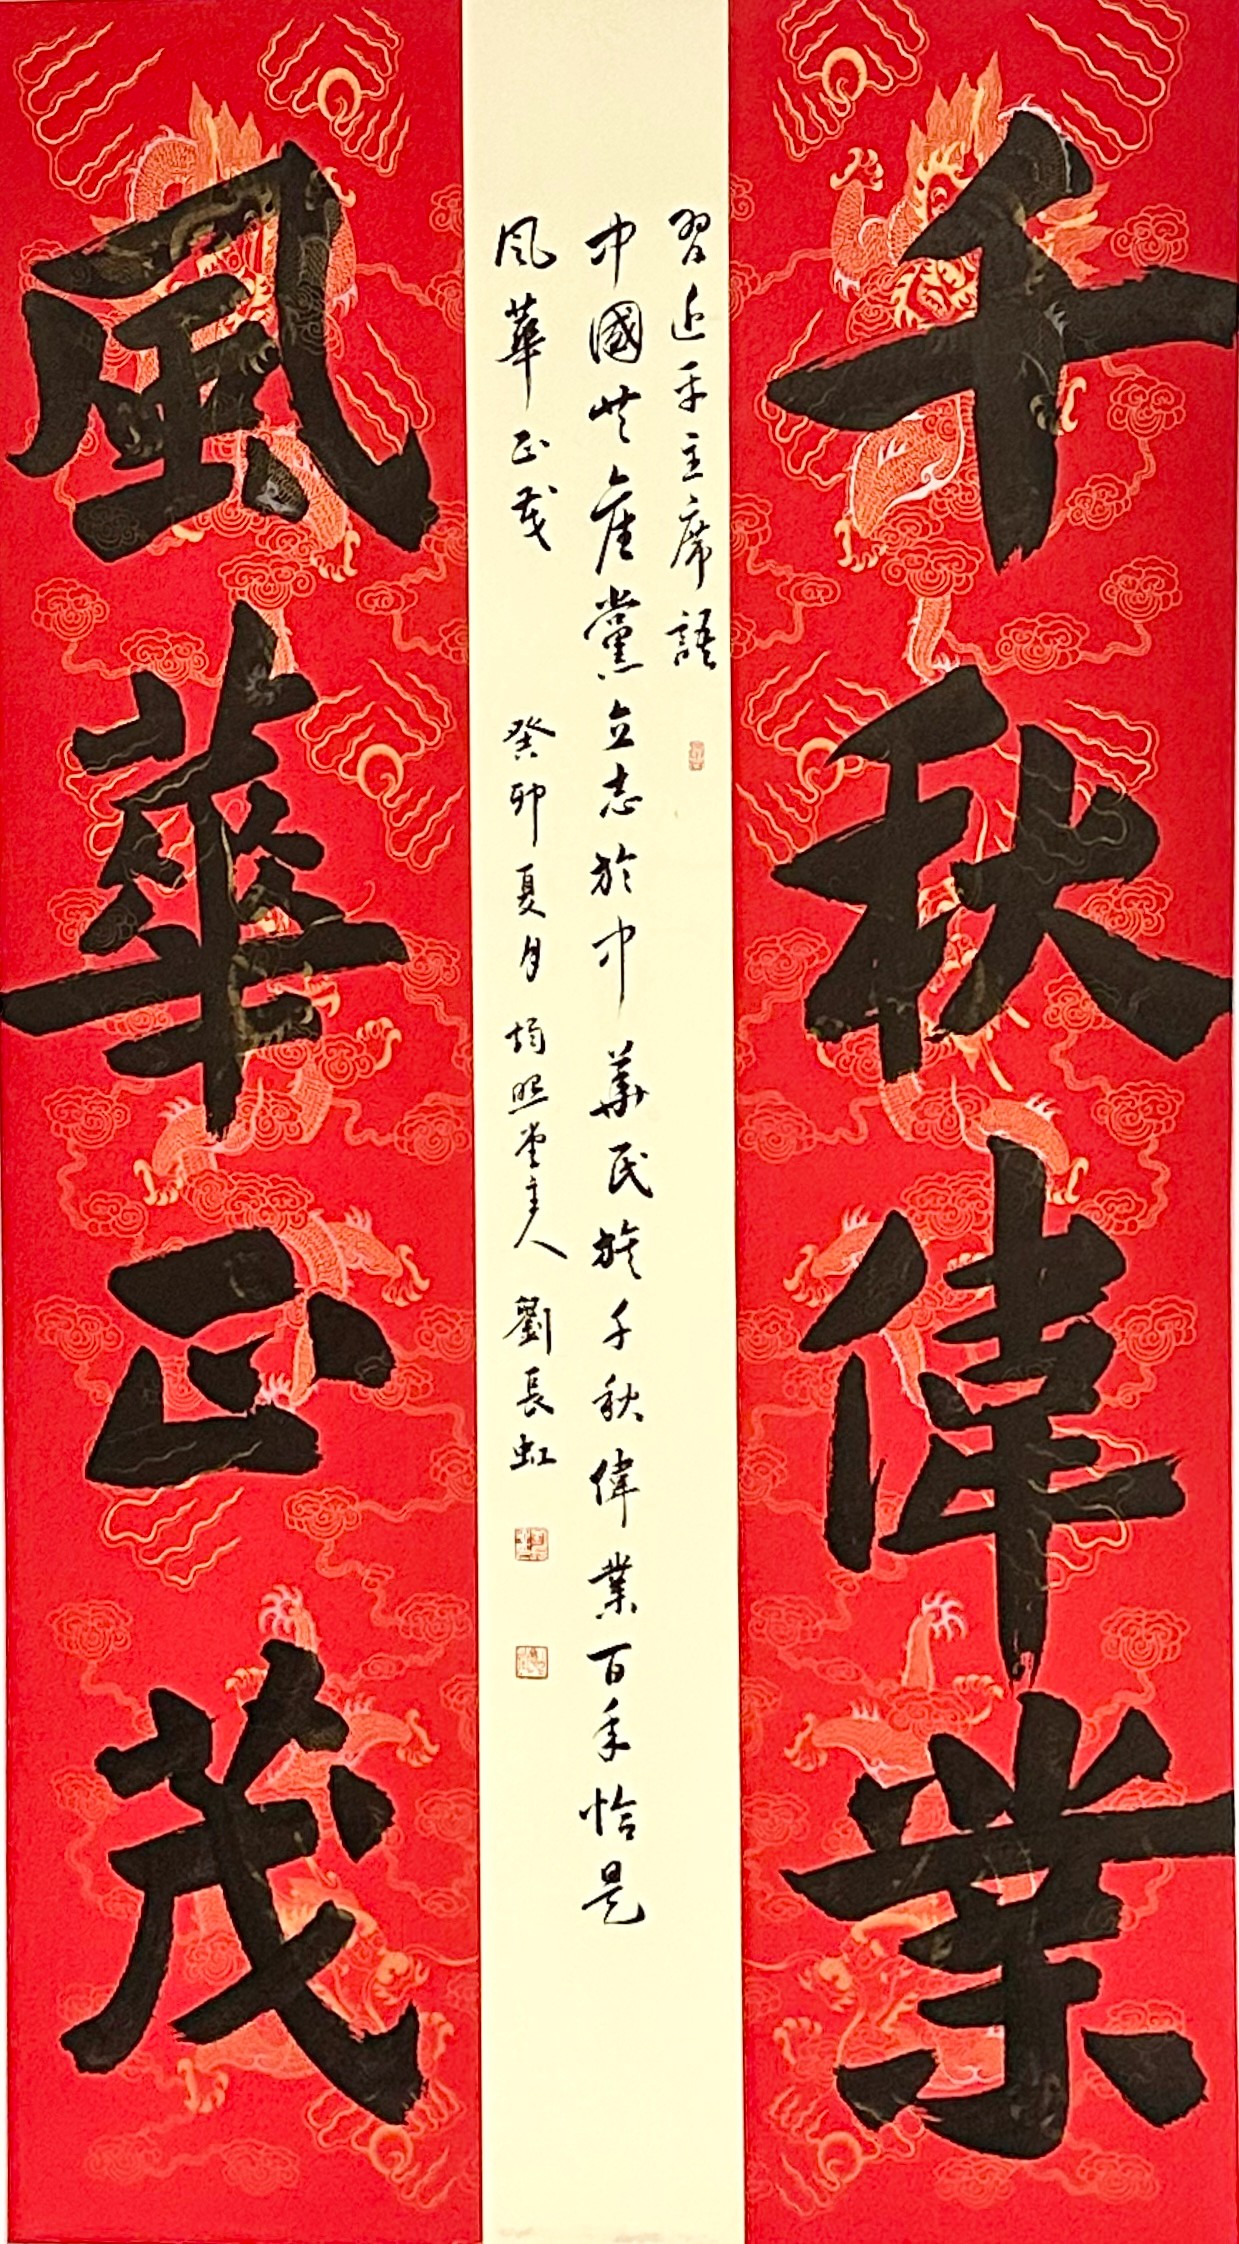 千秋偉業
習近平主席語
中國共產黨立志於中華民族千秋偉業百年恰是
風華正茂 癸卯夏月 均照堂主人 劉長虹
風華正茂